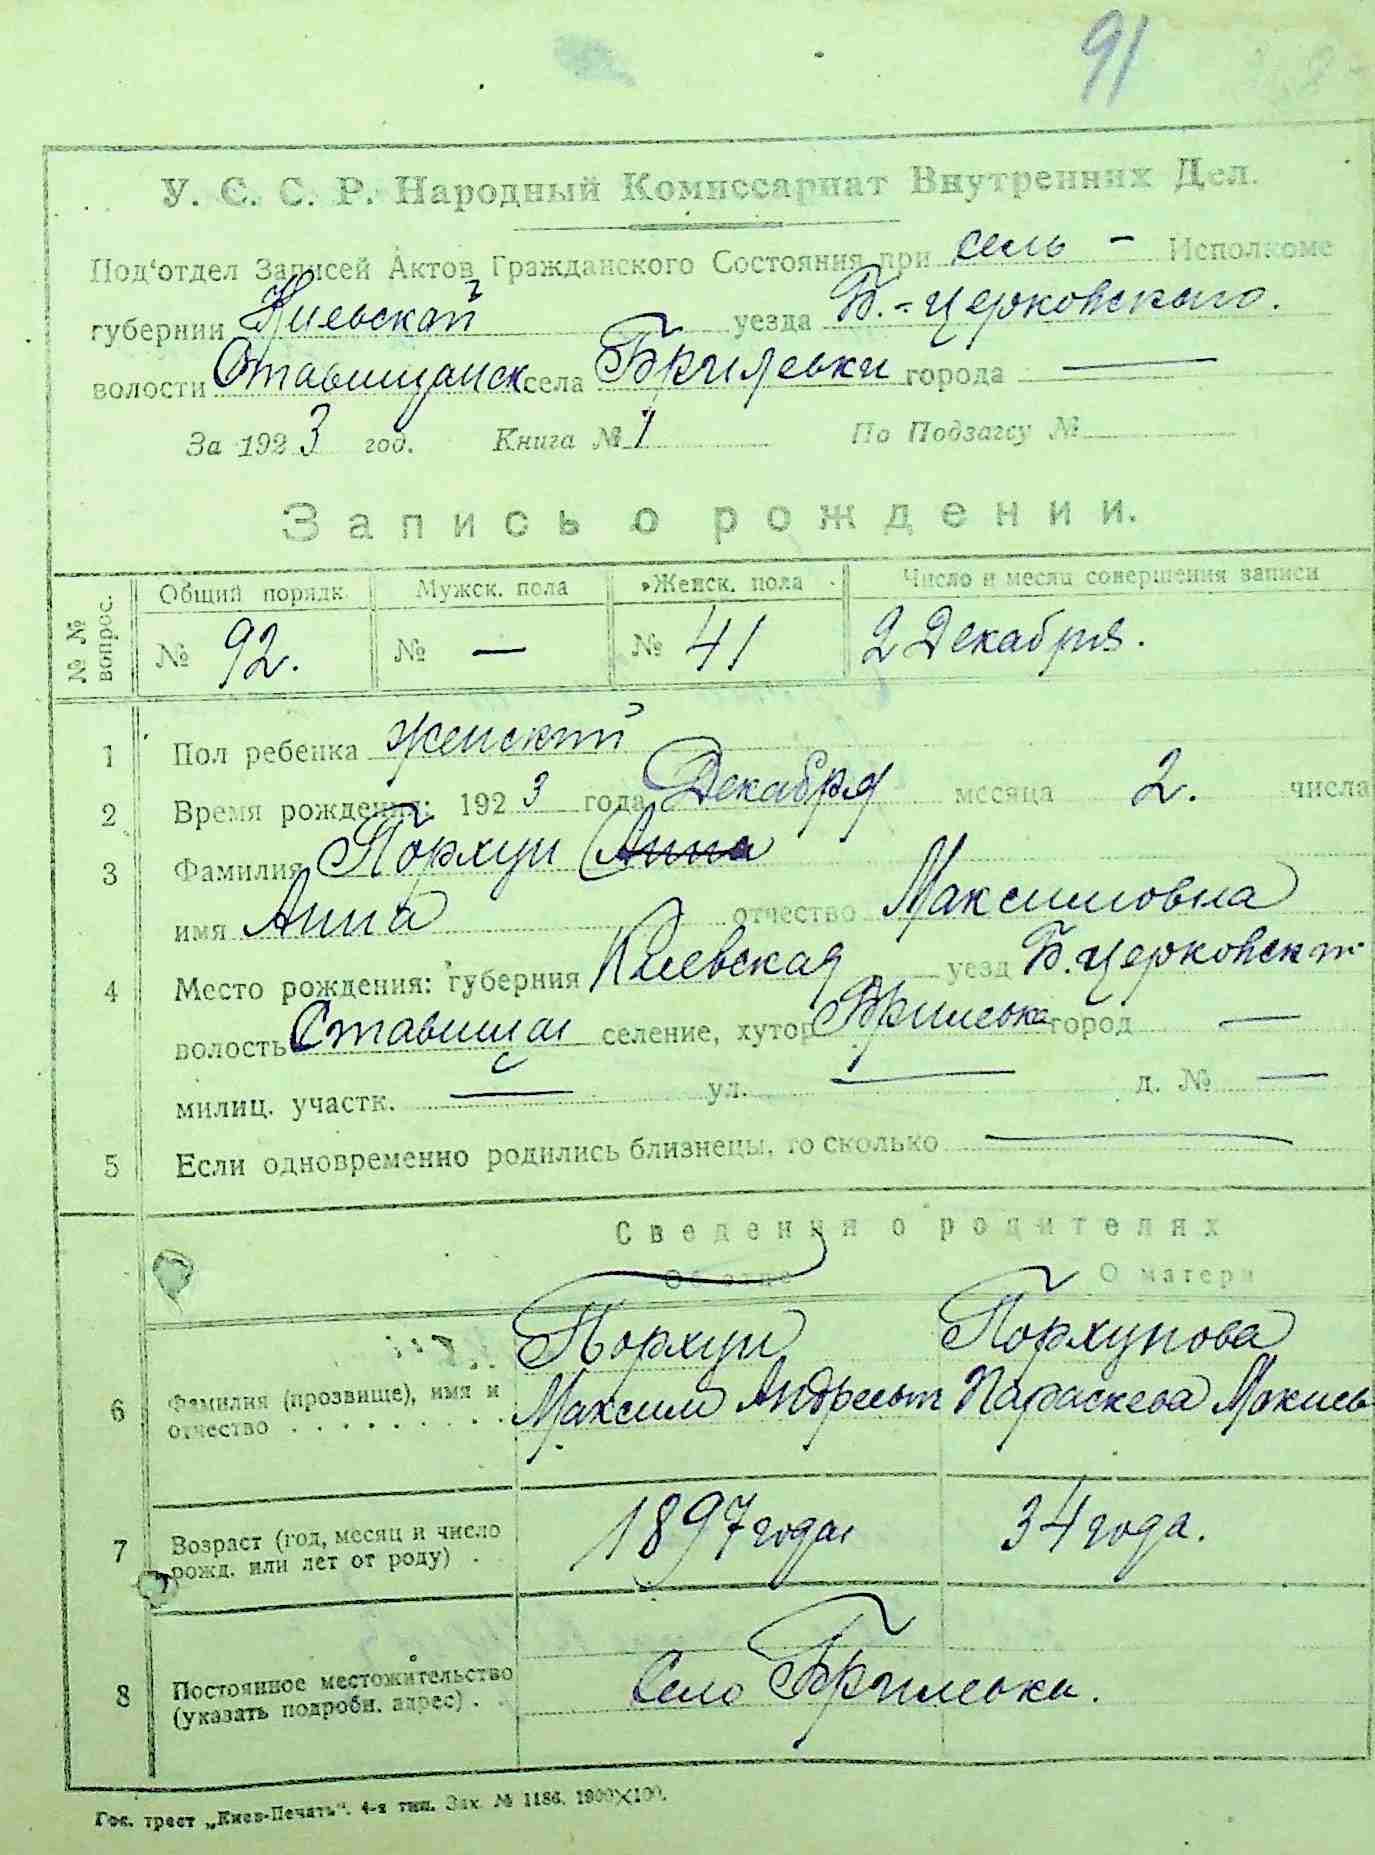 91
У. С. С. Р. Народный Комиссариат Внутренних Дел.
Под‘отдел Записей Актов Гражданского Состояния при сель - Исполкоме
губернии Киевской уезда Б.-Церковского.
волости Ставищанск села Брилевки города —
За 1923 год. Книга № 1 По Подзагсу №
Запись о рождении.
№ № вопрос. Общий порядк. Мужск. пола Женск. пола Число и месяц совершения записи
№ 92. № — № 41 2 Декабря.
1 Пол ребенка женский
2 Время рождения: 1923 года Декабря месяца 2. числа
3 Фамилия Порхун (Анна
имя Анна отчество Максимовна
4 Место рождения: губерния Киевская уезд Б. Церковск
волость Ставищан селение, хутор Брилевка город —
милиц. участк. — ул. — д. № —
5 Если одновременно родились близнецы, то сколько —
Сведения о родителях
Об отце О матери
Порхун Порхунова
6 Фамилия (прозвище), имя и
отчество . . . . . . . . Максим Андреев Параскева
7 Возраст (год, месяц и число
рожд. или лет от роду) . 1897 года 34 года.
8 Постоянное местожительство
(указать подробн. адрес) . . Село Брилевка.
Гос. трест „Киев-Печать“. 4-я тип. Зак. № 1186. 1900×100.